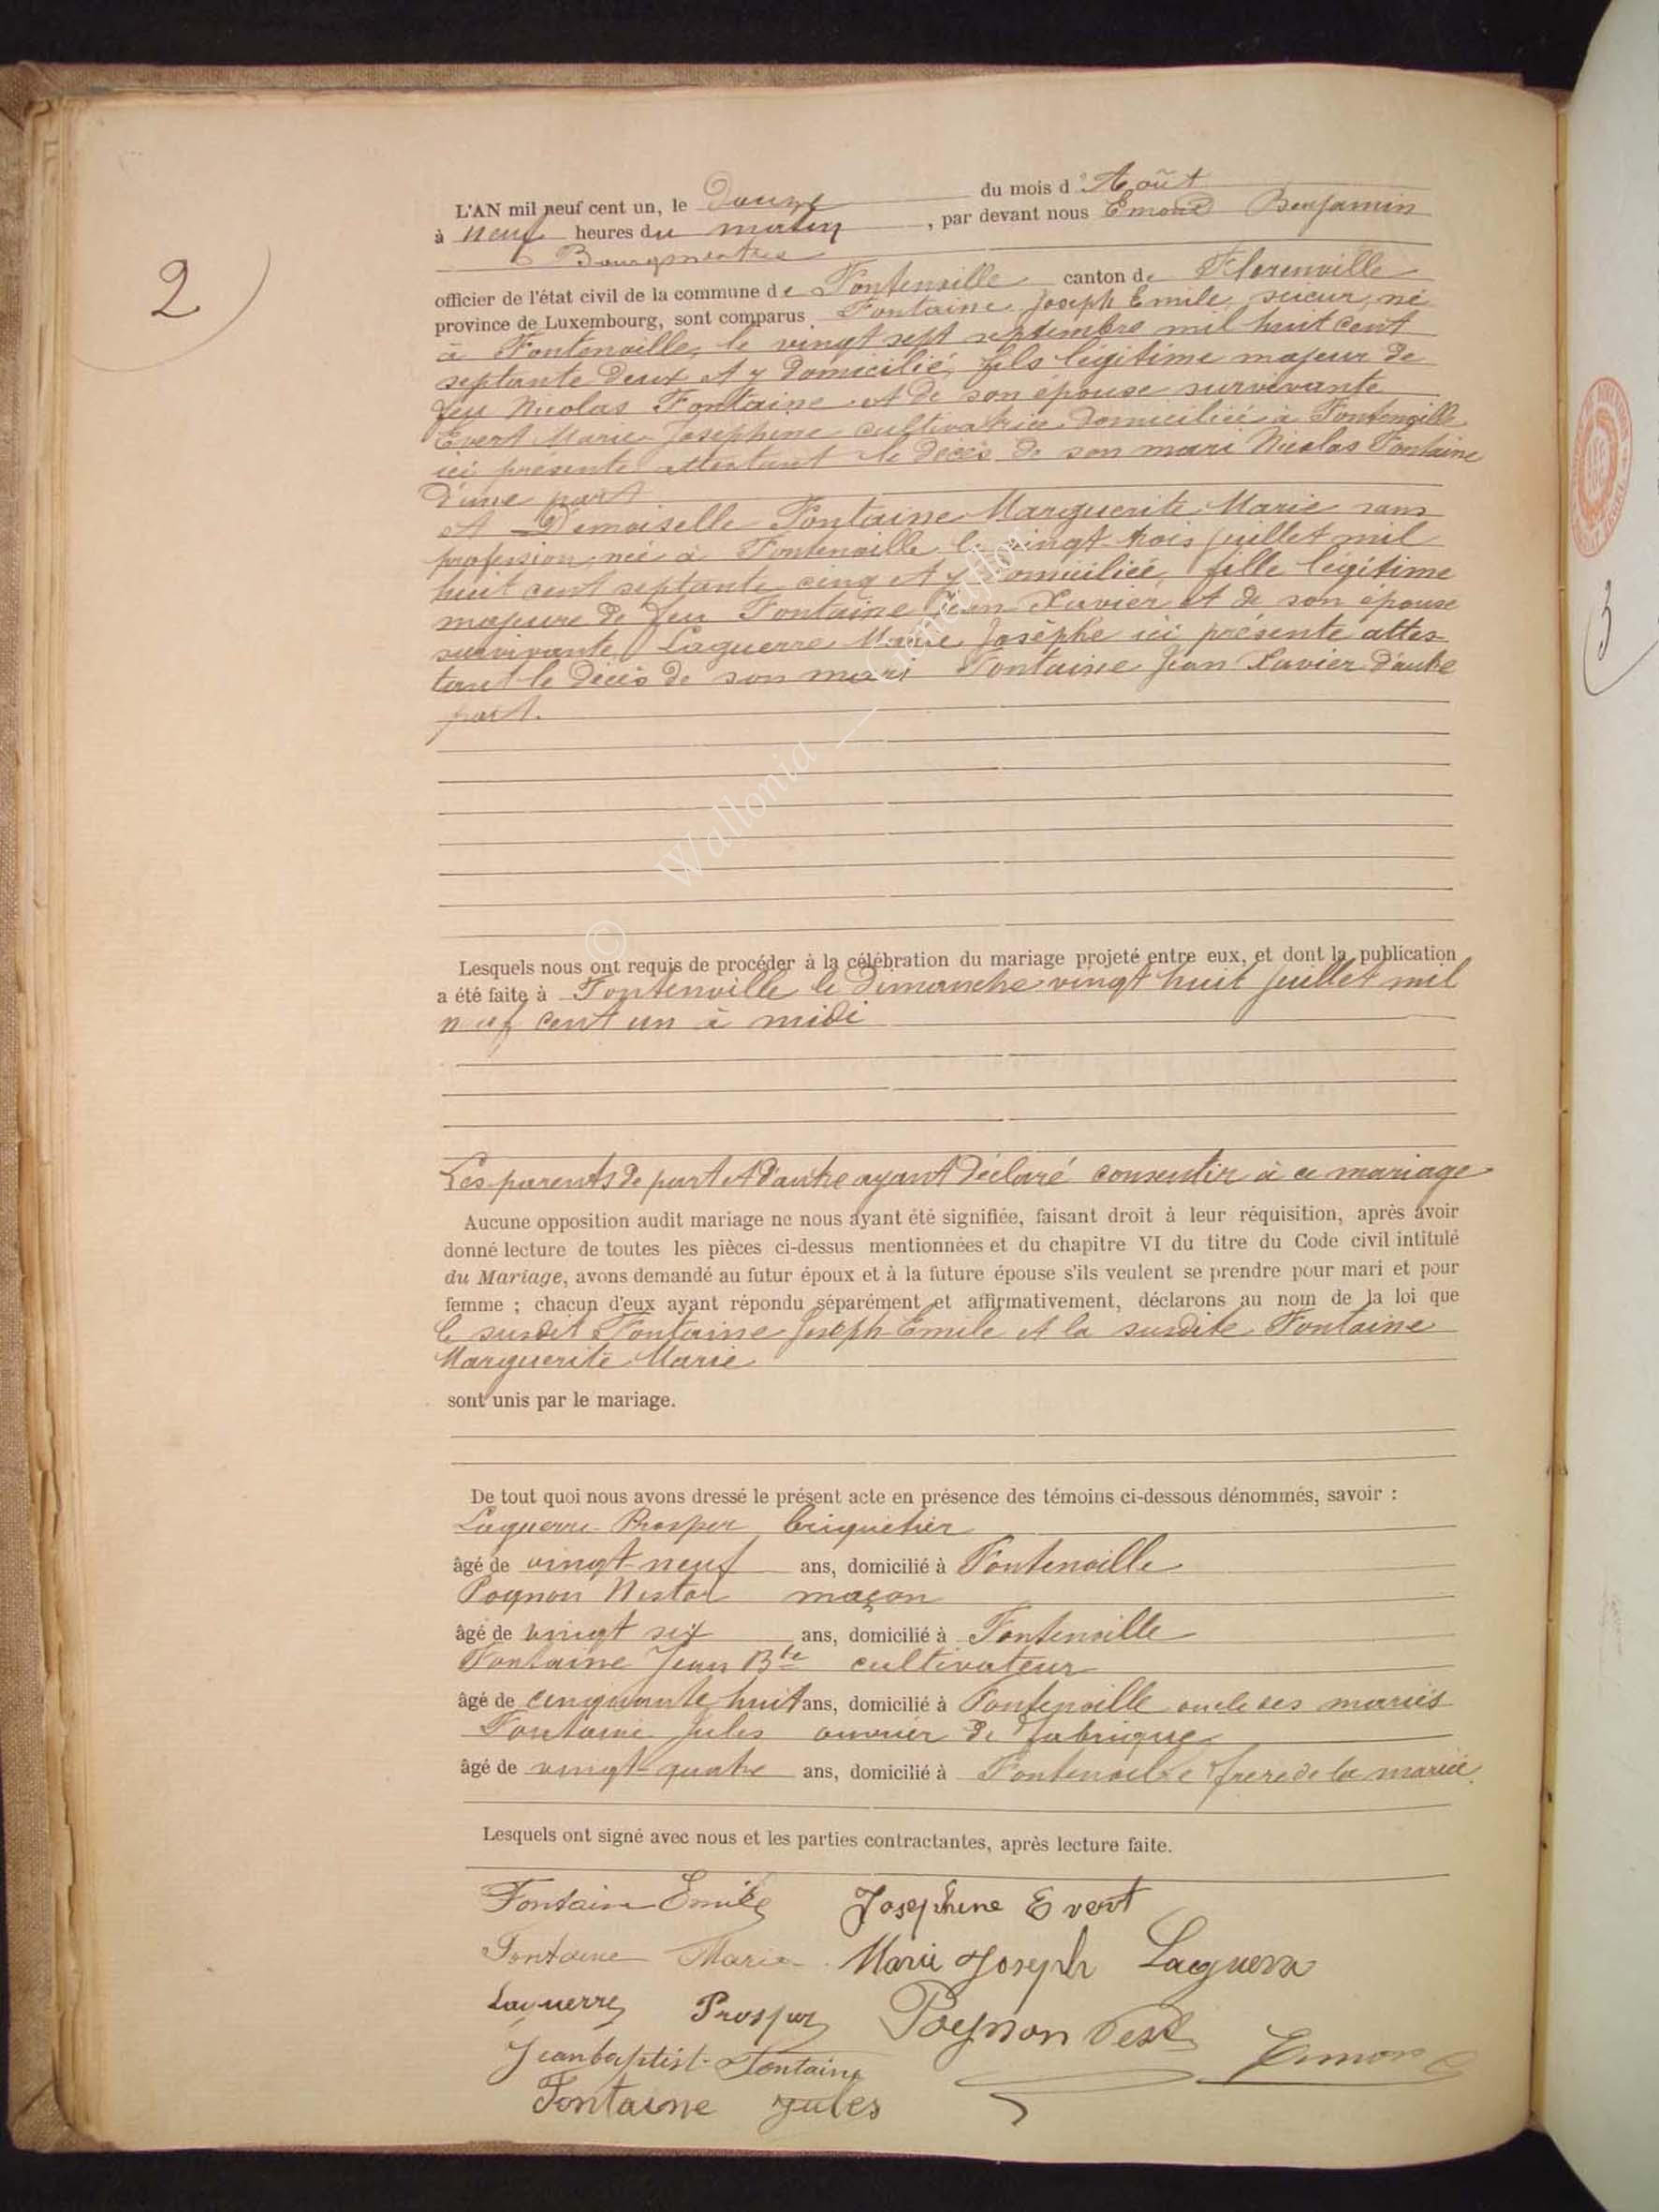 2
L'AN mil neuf cent un, le Douze du mois d'Août
à neuf heures du matin, par devant nous Emond Benjamin
Bourgmestre
officier de l'état civil de la commune de Fontenoille canton de Florenville
province de Luxembourg, sont comparus Fontaine Joseph Emile, scieur, né
à Fontenoille, le vingt sept septembre mil huit cent
septante deux et y domicilié, fils légitime majeur de
feu Nicolas Fontaine et de son épouse survivante
Evert Marie Josephine cultivatrice domiciliée à Fontenoille
ici présente attestant le décès de son mari Nicolas Fontaine
d'une part
et Demoiselle Fontaine Marguerite Marie sans
profession, née à Fontenoille le vingt trois juillet mil
huit cent septante cinq et y domiciliée, fille légitime
majeure de feu Fontaine Jean Xavier et de son épouse
survivante Laguerre Marie Josèphe ici présente attes-
tant le décès de son mari Fontaine Jean Xavier d'autre
part.
© Wallonia –
Lesquels nous ont requis de procéder à la célébration du mariage projeté entre eux, et dont la publication
a été faite à Fontenoille le Dimanche vingt huit juillet mil
neuf cent un à midi
Les parents de part et d'autre ayant déclaré consentir à ce mariage
Aucune opposition audit mariage ne nous ayant été signifiée, faisant droit à leur réquisition, après avoir
donné lecture de toutes les pièces ci-dessus mentionnées et du chapitre VI du titre du Code civil intitulé
du Mariage, avons demandé au futur époux et à la future épouse s'ils veulent se prendre pour mari et pour
femme ; chacun d'eux ayant répondu séparément et affirmativement, déclarons au nom de la loi que
le susdit Fontaine Joseph Emile et la susdite Fontaine
Marguerite Marie
sont unis par le mariage.
De tout quoi nous avons dressé le présent acte en présence des témoins ci-dessous dénommés, savoir :
Laguerre Prosper briquetier
âgé de vingt-neuf ans, domicilié à Fontenoille
Pognon Nestor maçon
âgé de vingt six ans, domicilié à Fontenoille
Fontaine Jean Bte cultivateur
âgé de cinquante huit ans, domicilié à Fontenoille oncle des mariés
Fontaine Jules ouvrier de fabrique
âgé de vingt-quatre ans, domicilié à Fontenoille frère de la mariée
Lesquels ont signé avec nous et les parties contractantes, après lecture faite.
Fontaine Emile Josephine Evert
Fontaine Marie Marie Joseph Laguerre
Laguerre Prosper Pognon Emond
Jeanbaptist Fontaine
Fontaine Jules
3